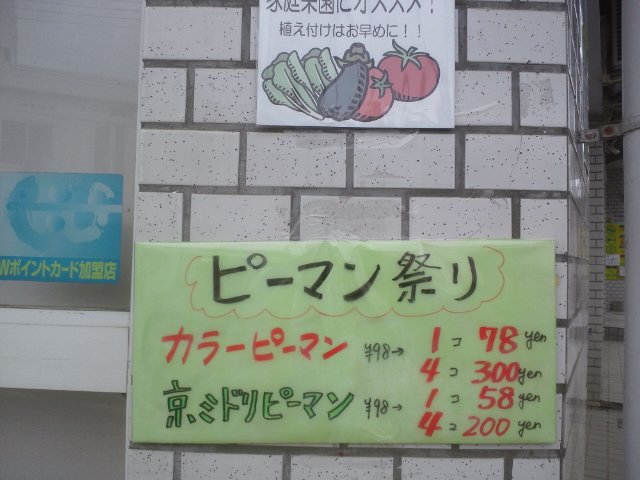 家庭菜園にオススメ!
植え付けはお早めに!!
Wポイントカード加盟店
ピーマン祭り
カラーピーマン ¥98→ 1コ 78yen
4コ 300yen
京ミドリピーマン ¥98→ 1コ 58yen
4コ 200yen